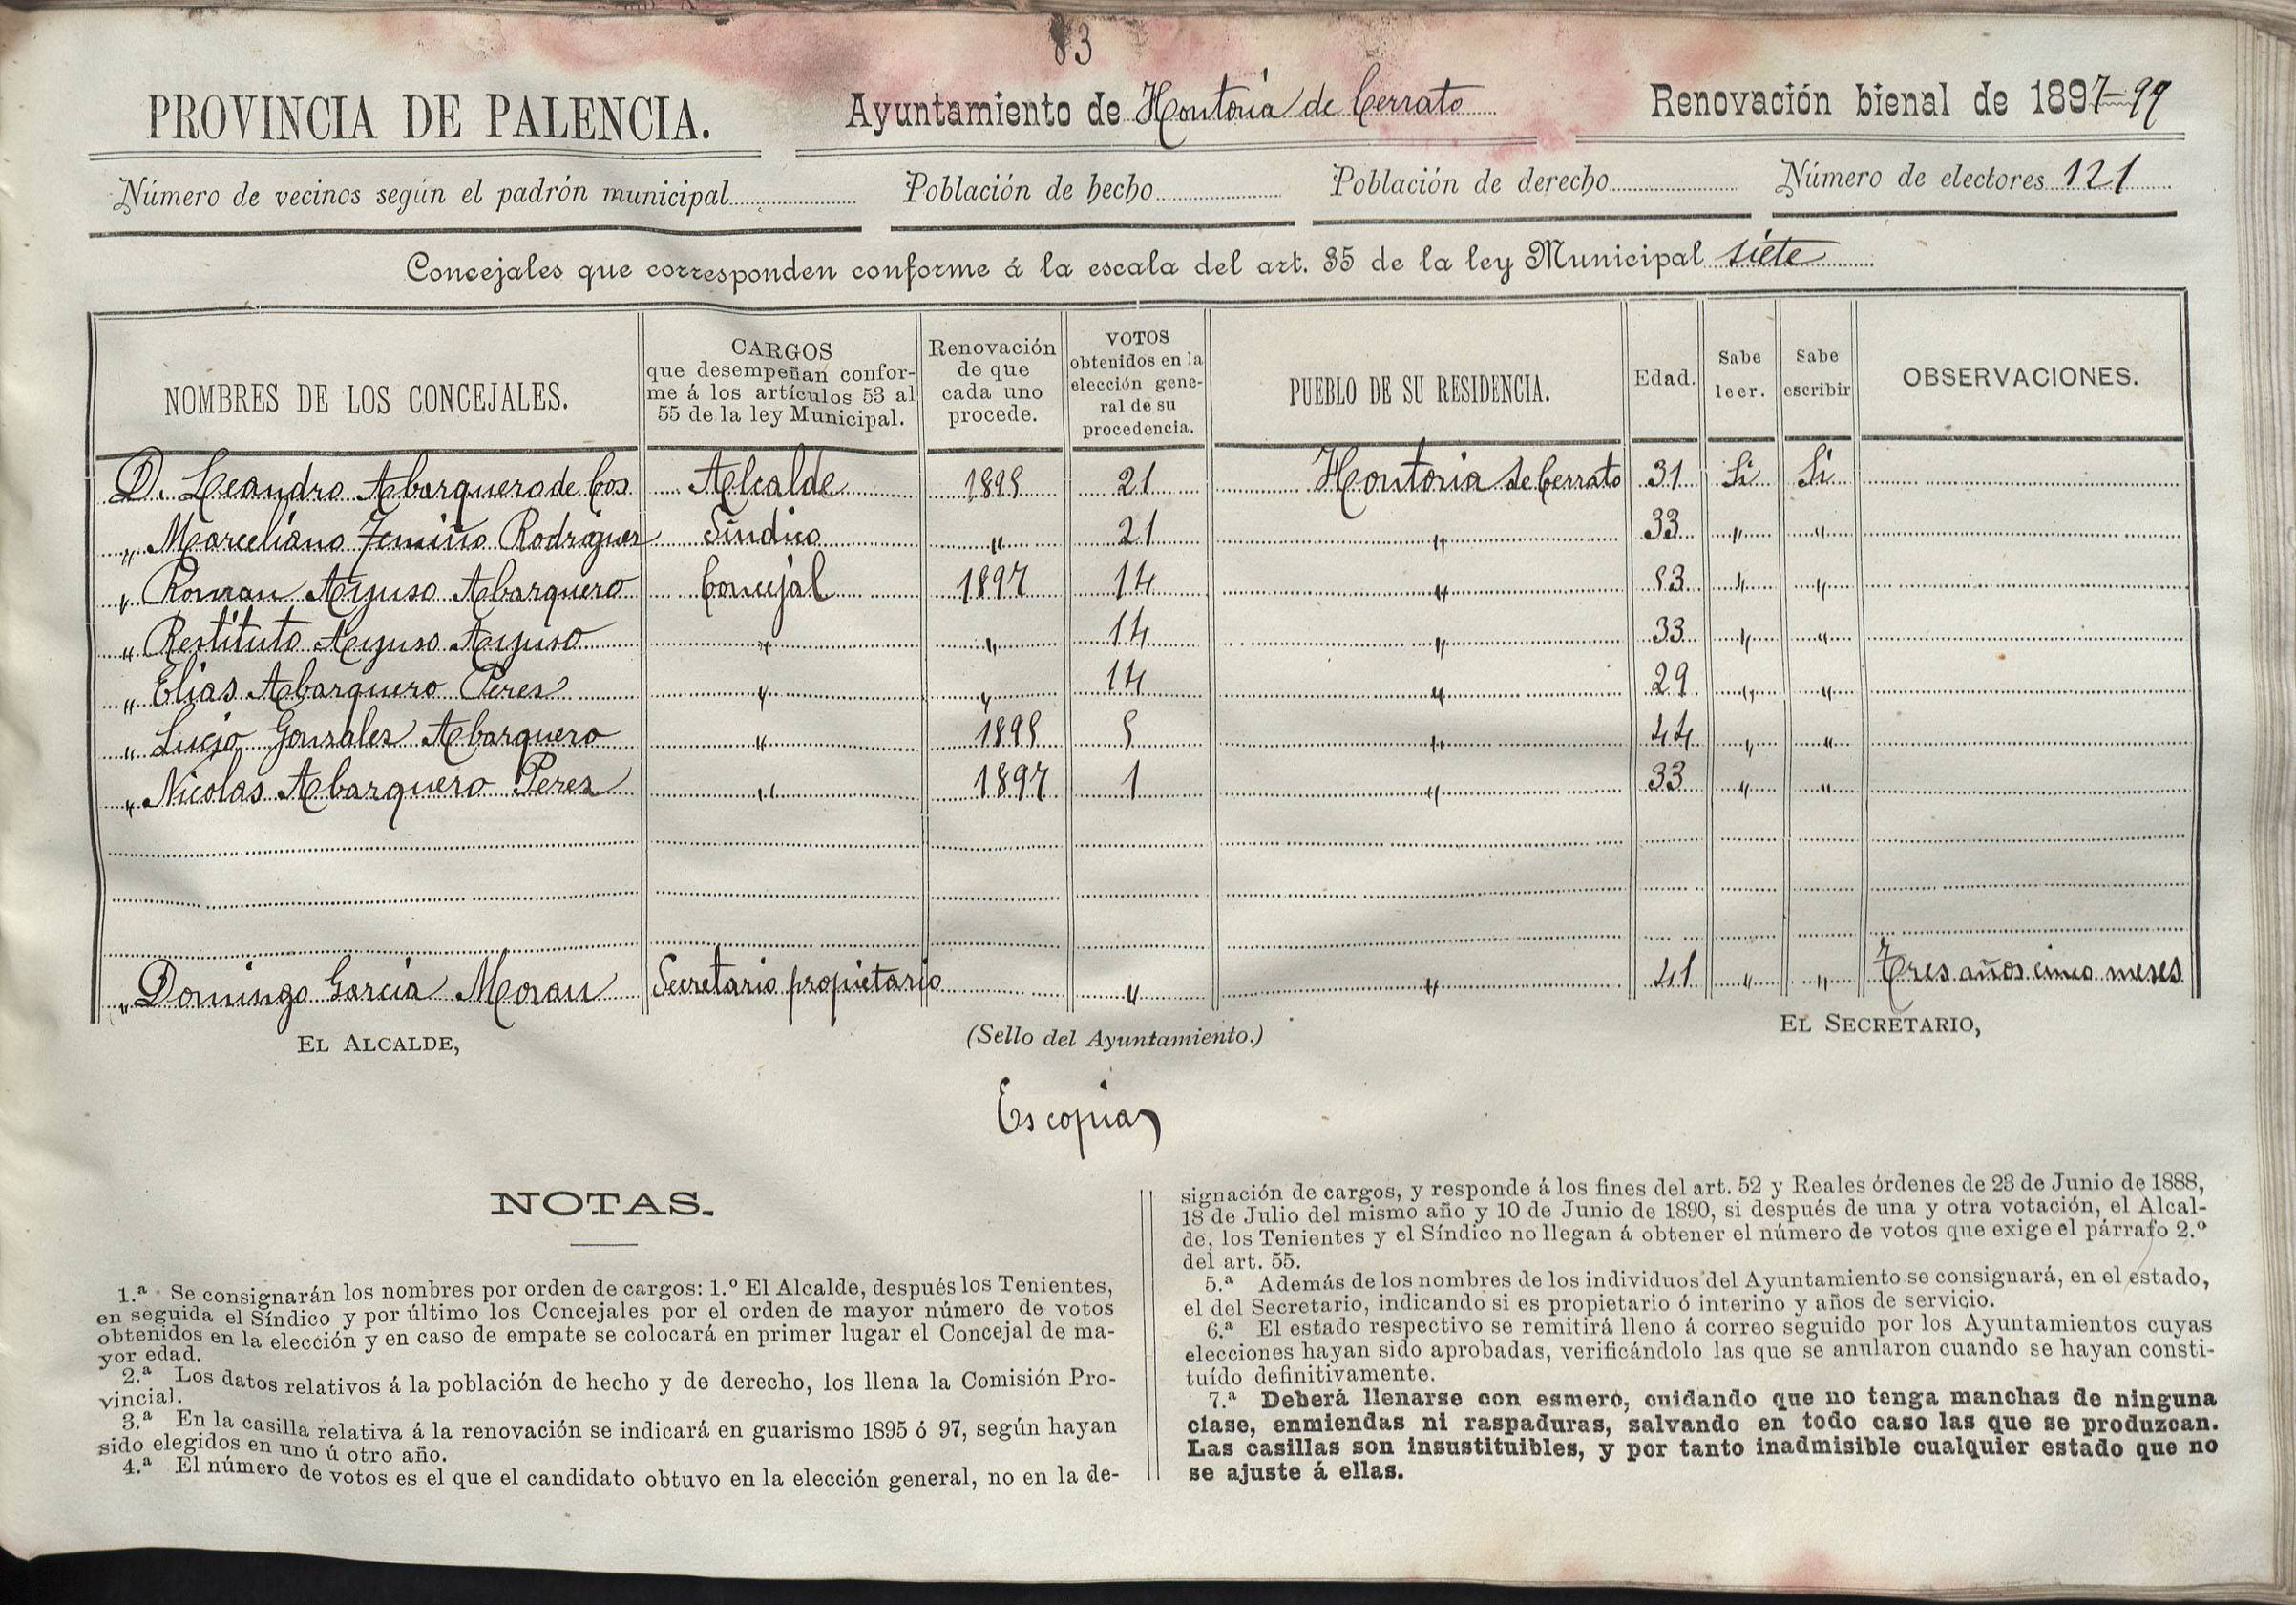 83
PROVINCIA DE PALENCIA.
Ayuntamiento de Hontoria de Cerrato
Renovación bienal de 1897-99
Número de vecinos según el padrón municipal
Población de hecho
Población de derecho
Número de electores 121
Concejales que corresponden conforme á la escala del art. 35 de la ley Municipal siete
NOMBRES DE LOS CONCEJALES.
CARGOS
que desempeñan confor-
me á los artículos 53 al
55 de la ley Municipal.
Renovación
de que
cada uno
procede.
VOTOS
obtenidos en la
elección gene-
ral de su
procedencia.
PUEBLO DE SU RESIDENCIA.
Edad.
Sabe
leer.
Sabe
escribir
OBSERVACIONES.
D. Leandro Abarquero de Cos Alcalde 1895 21 Hontoria de Cerrato 31 Si Si
" Marceliano Temiño Rodriguez Síndico " 21 " 33 " "
" Roman Ayuso Abarquero Concejal 1897 14 " 53 " "
" Restituto Ayuso Ayuso " " 14 " 33 " "
" Elias Abarquero Perez " " 14 " 29 " "
" Lucio Gonzalez Abarquero " 1895 5 " 44 " "
" Nicolas Abarquero Perez " 1897 1 " 33 " "
" Domingo Garcia Moran Secretario propietario " " 41 " " Tres años cinco meses
EL ALCALDE,
(Sello del Ayuntamiento.)
EL SECRETARIO,
Es copia
NOTAS.
1.ª Se consignarán los nombres por orden de cargos: 1.º El Alcalde, después los Tenientes,
en seguida el Síndico y por último los Concejales por el orden de mayor número de votos
obtenidos en la elección y en caso de empate se colocará en primer lugar el Concejal de ma-
yor edad.
2.ª Los datos relativos á la población de hecho y de derecho, los llena la Comisión Pro-
vincial.
3.ª En la casilla relativa á la renovación se indicará en guarismo 1895 ó 97, según hayan
sido elegidos en uno ú otro año.
4.ª El número de votos es el que el candidato obtuvo en la elección general, no en la de-
signación de cargos, y responde á los fines del art. 52 y Reales órdenes de 23 de Junio de 1888,
18 de Julio del mismo año y 10 de Junio de 1890, si después de una y otra votación, el Alcal-
de, los Tenientes y el Síndico no llegan á obtener el número de votos que exige el párrafo 2.º
del art. 55.
5.ª Además de los nombres de los individuos del Ayuntamiento se consignará, en el estado,
el del Secretario, indicando si es propietario ó interino y años de servicio.
6.ª El estado respectivo se remitirá lleno á correo seguido por los Ayuntamientos cuyas
elecciones hayan sido aprobadas, verificándolo las que se anularon cuando se hayan consti-
tuído definitivamente.
7.ª Deberá llenarse con esmero, cuidando que no tenga manchas de ninguna
clase, enmiendas ni raspaduras, salvando en todo caso las que se produzcan.
Las casillas son insustituibles, y por tanto inadmisible cualquier estado que no
se ajuste á ellas.